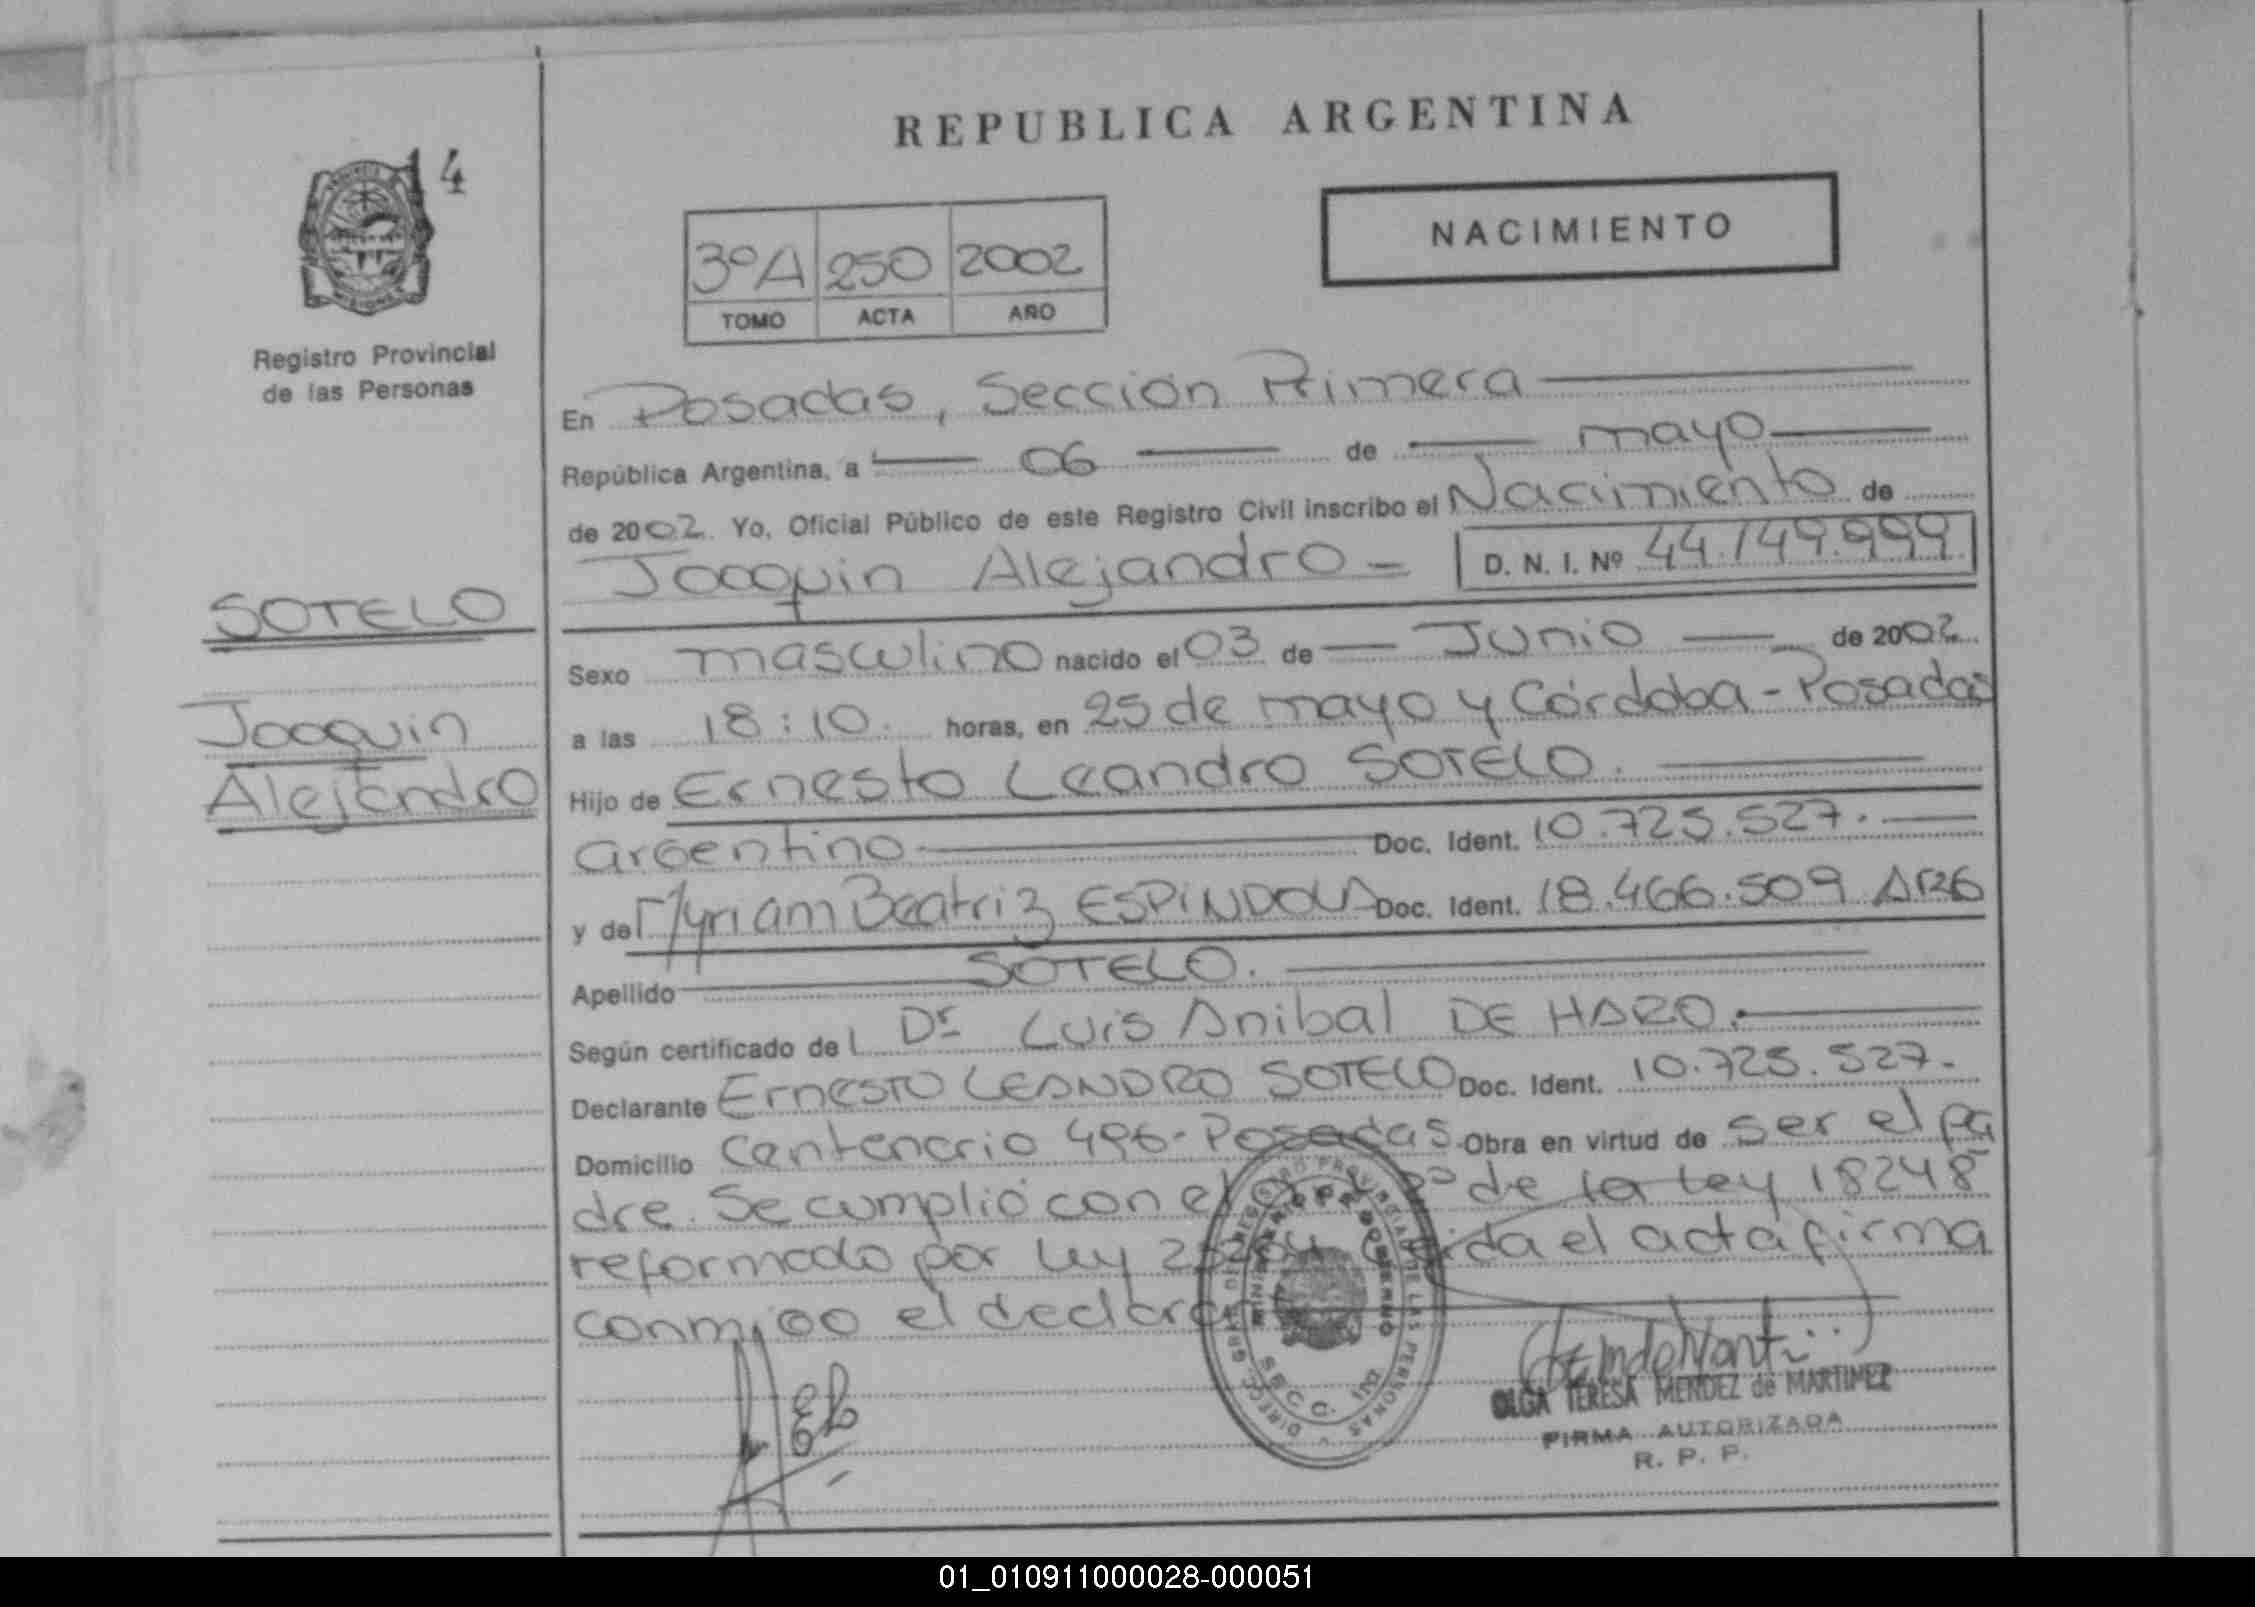 REPUBLICA ARGENTINA
14
NACIMIENTO
3ºA 250 2002
TOMO ACTA AÑO
Registro Provincial
de las Personas
En Posadas, Sección Primera
República Argentina, a 06 de mayo
de 2002. Yo, Oficial Público de este Registro Civil inscribo el Nacimiento de
Joaquin Alejandro D. N. I. Nº 44.149.999
SOTELO
Joaquin
Alejandro
Sexo masculino nacido el 03 de Junio de 2002
a las 18:10. horas, en 25 de mayo y Córdoba - Posadas
Hijo de Ernesto Leandro SOTELO.
argentino Doc. Ident. 10.725.527.
y de Myriam Beatriz ESPINDOLA Doc. Ident. 18.466.509 ARG
Apellido SOTELO.
Según certificado del Dr Luis Anibal DE HARO.
Declarante Ernesto LEANDRO SOTELO Doc. Ident. 10.725.527.
Domicilio Centenario 496 - Posadas Obra en virtud de ser el pa
dre. Se cumplió con el de la Ley 18248
reformado por Ley el acta firma
conmigo el
DIRECC. GRAL. DEL REGISTRO PROVINCIAL DE LAS PERSONAS
MINISTERIO DE GOBIERNO
SECC.
OLGA TERESA MENDEZ de MARTINEZ
FIRMA AUTORIZADA
R. P. P.
01_010911000028-000051